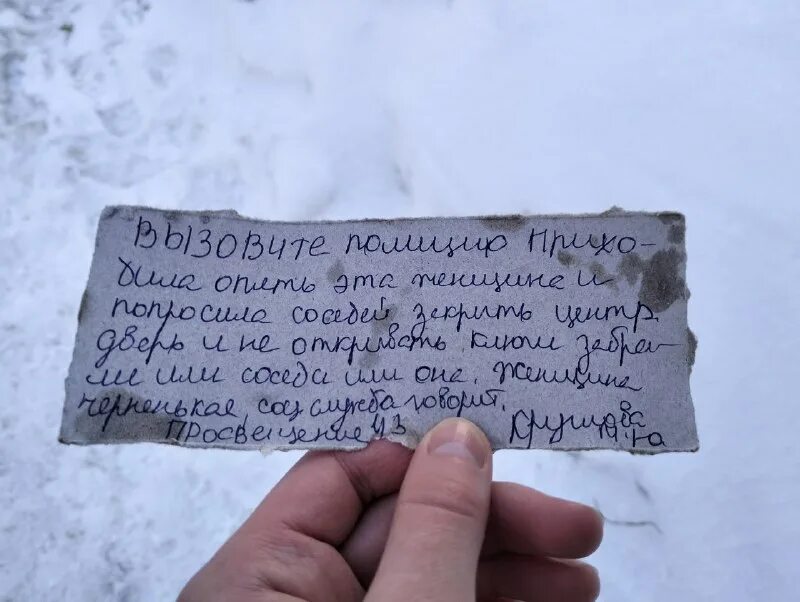 Вызовите полицию Прихо-
дила опять эта женщина и
попросила соседей закрить центр.
дверь и не откривать ключи забра-
ли или соседа или она. Женщина
черненькая, соц служба говорит.
Просвещение 43